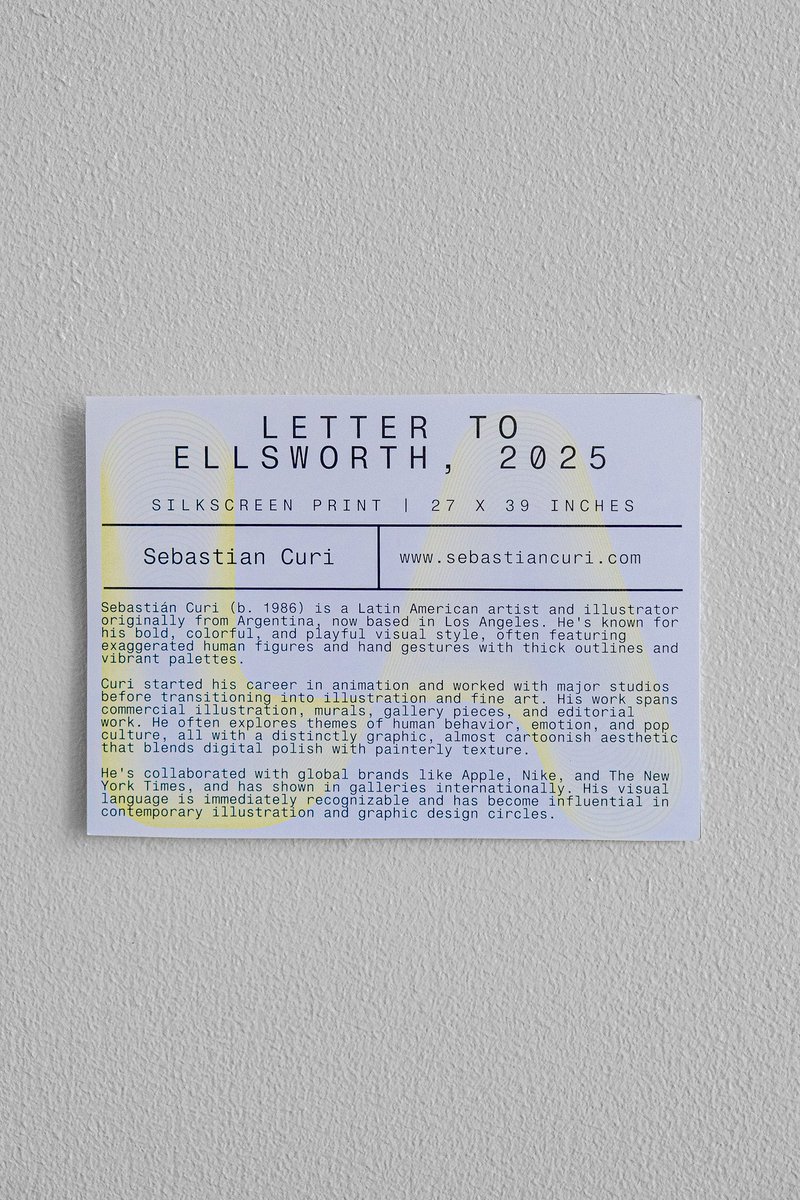 LETTER TO
ELLSWORTH, 2025
SILKSCREEN PRINT | 27 X 39 INCHES
Sebastian Curi
www.sebastiancuri.com
Sebastián Curi (b. 1986) is a Latin American artist and illustrator
originally from Argentina, now based in Los Angeles. He's known for
his bold, colorful, and playful visual style, often featuring
exaggerated human figures and hand gestures with thick outlines and
vibrant palettes.
Curi started his career in animation and worked with major studios
before transitioning into illustration and fine art. His work spans
commercial illustration, murals, gallery pieces, and editorial
work. He often explores themes of human behavior, emotion, and pop
culture, all with a distinctly graphic, almost cartoonish aesthetic
that blends digital polish with painterly texture.
He's collaborated with global brands like Apple, Nike, and The New
York Times, and has shown in galleries internationally. His visual
language is immediately recognizable and has become influential in
contemporary illustration and graphic design circles.